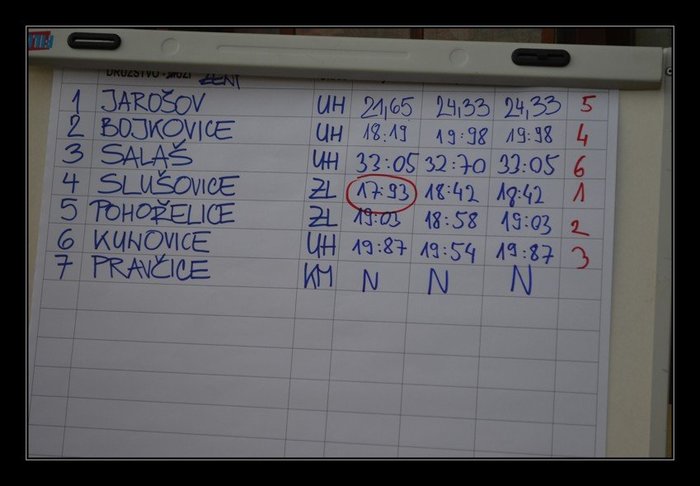 DRUŽSTVO MUŽI ŽENY
1 JAROŠOV UH 21,65 24,33 24,33 5
2 BOJKOVICE UH 18:19 19:98 19:98 4
3 SALAŠ UH 33:05 32:70 33:05 6
4 SLUŠOVICE ZL 17:93 18:42 18:42 1
5 POHOŘELICE ZL 19:03 18:58 19:03 2
6 KUNOVICE UH 19:87 19:54 19:87 3
7 PRAVČICE KM N N N